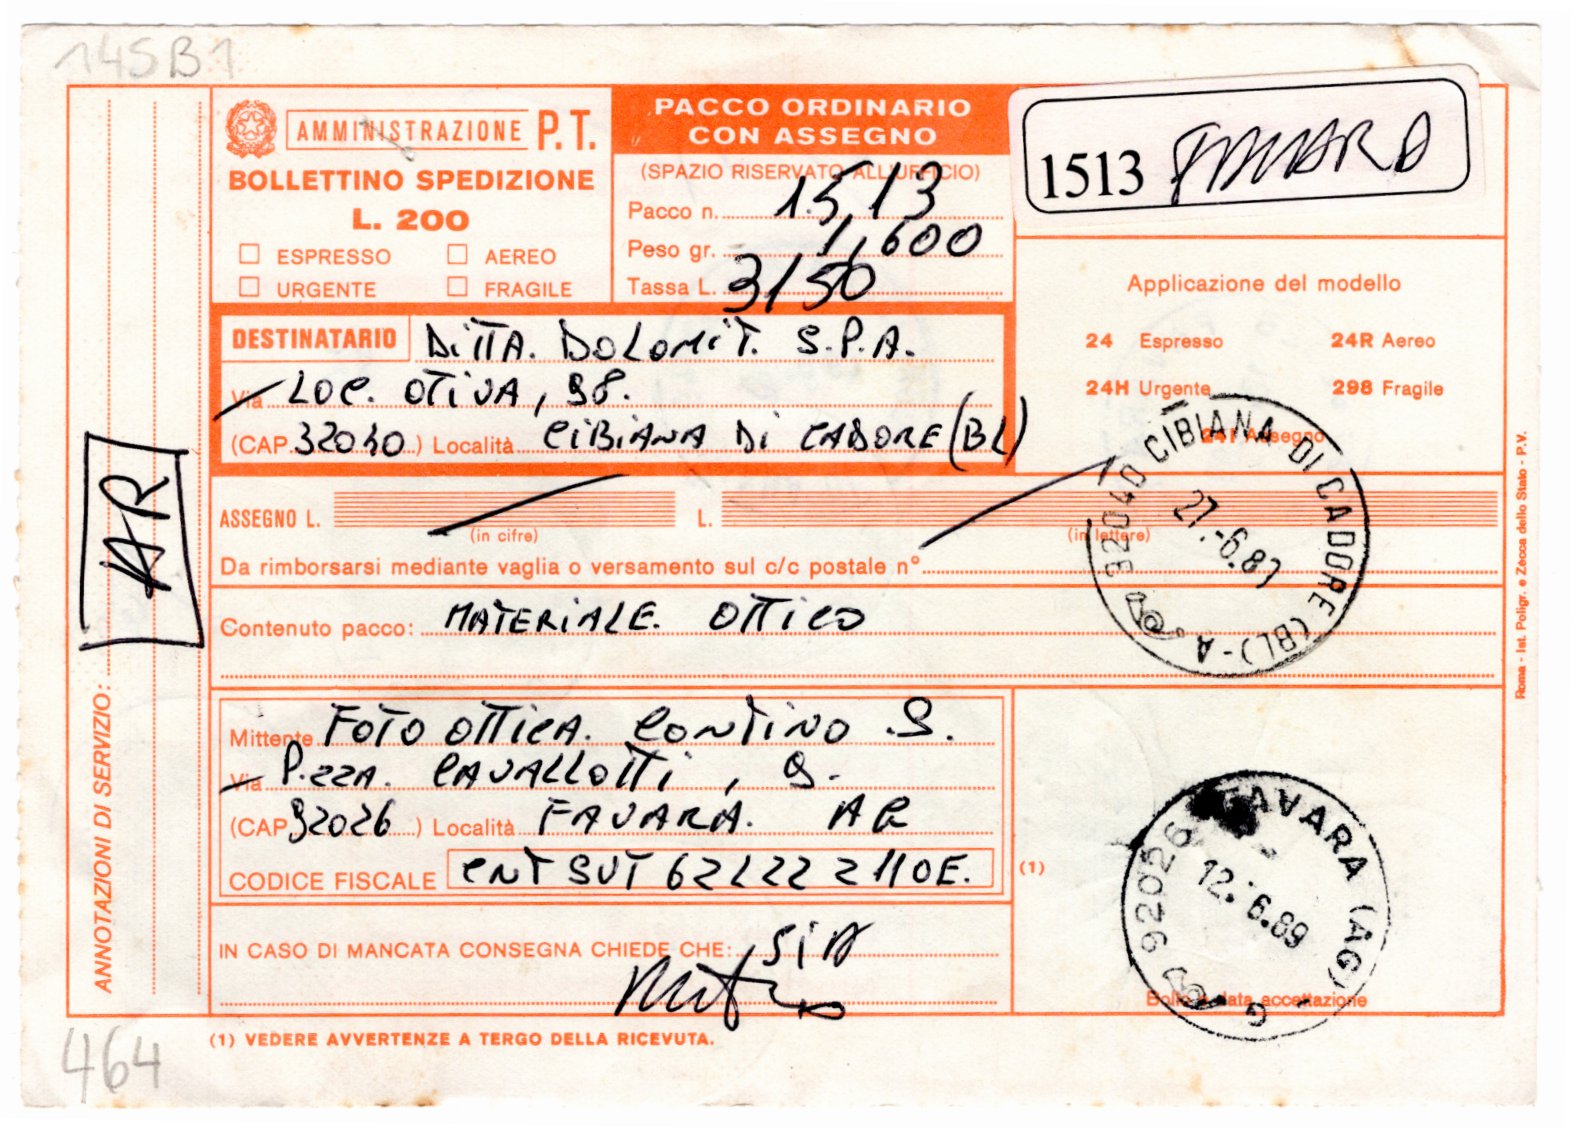 145B1
AMMINISTRAZIONE P.T.
BOLLETTINO SPEDIZIONE
L. 200
ESPRESSO AEREO
URGENTE FRAGILE
PACCO ORDINARIO
CON ASSEGNO
(SPAZIO RISERVATO ALL'UFFICIO)
Pacco n. 1513
Peso gr. 1,600
Tassa L. 3150
1513 FAVARA
Applicazione del modello
24 Espresso 24R Aereo
24H Urgente 298 Fragile
241 Assegno
DESTINATARIO DITTA. DOLOMIT. S.P.A.
Via LOC. OTIVA, 98.
(CAP 32040) Località CIBIANA DI CADORE (BL)
ASSEGNO L. L.
(in cifre) (in lettere)
Da rimborsarsi mediante vaglia o versamento sul c/c postale n°
32040 CIBIANA DI CADORE (BL) - A
27.-6.89
AR
Contenuto pacco: MATERIALE. OTTICO
Mittente FOTO OTTICA. CONTINO .S.
Via P.zzA. CAVALLOTTI, 9.
(CAP 92026) Località FAVARA. AG
CODICE FISCALE CNT SVT 62L22 Z110E.
(1)
92026 FAVARA (AG) G
12. 6.89
Bollo e data accettazione
IN CASO DI MANCATA CONSEGNA CHIEDE CHE: SIA
ANNOTAZIONI DI SERVIZIO:
Roma - Ist. Poligr. e Zecca dello Stato - P.V.
(1) VEDERE AVVERTENZE A TERGO DELLA RICEVUTA.
464